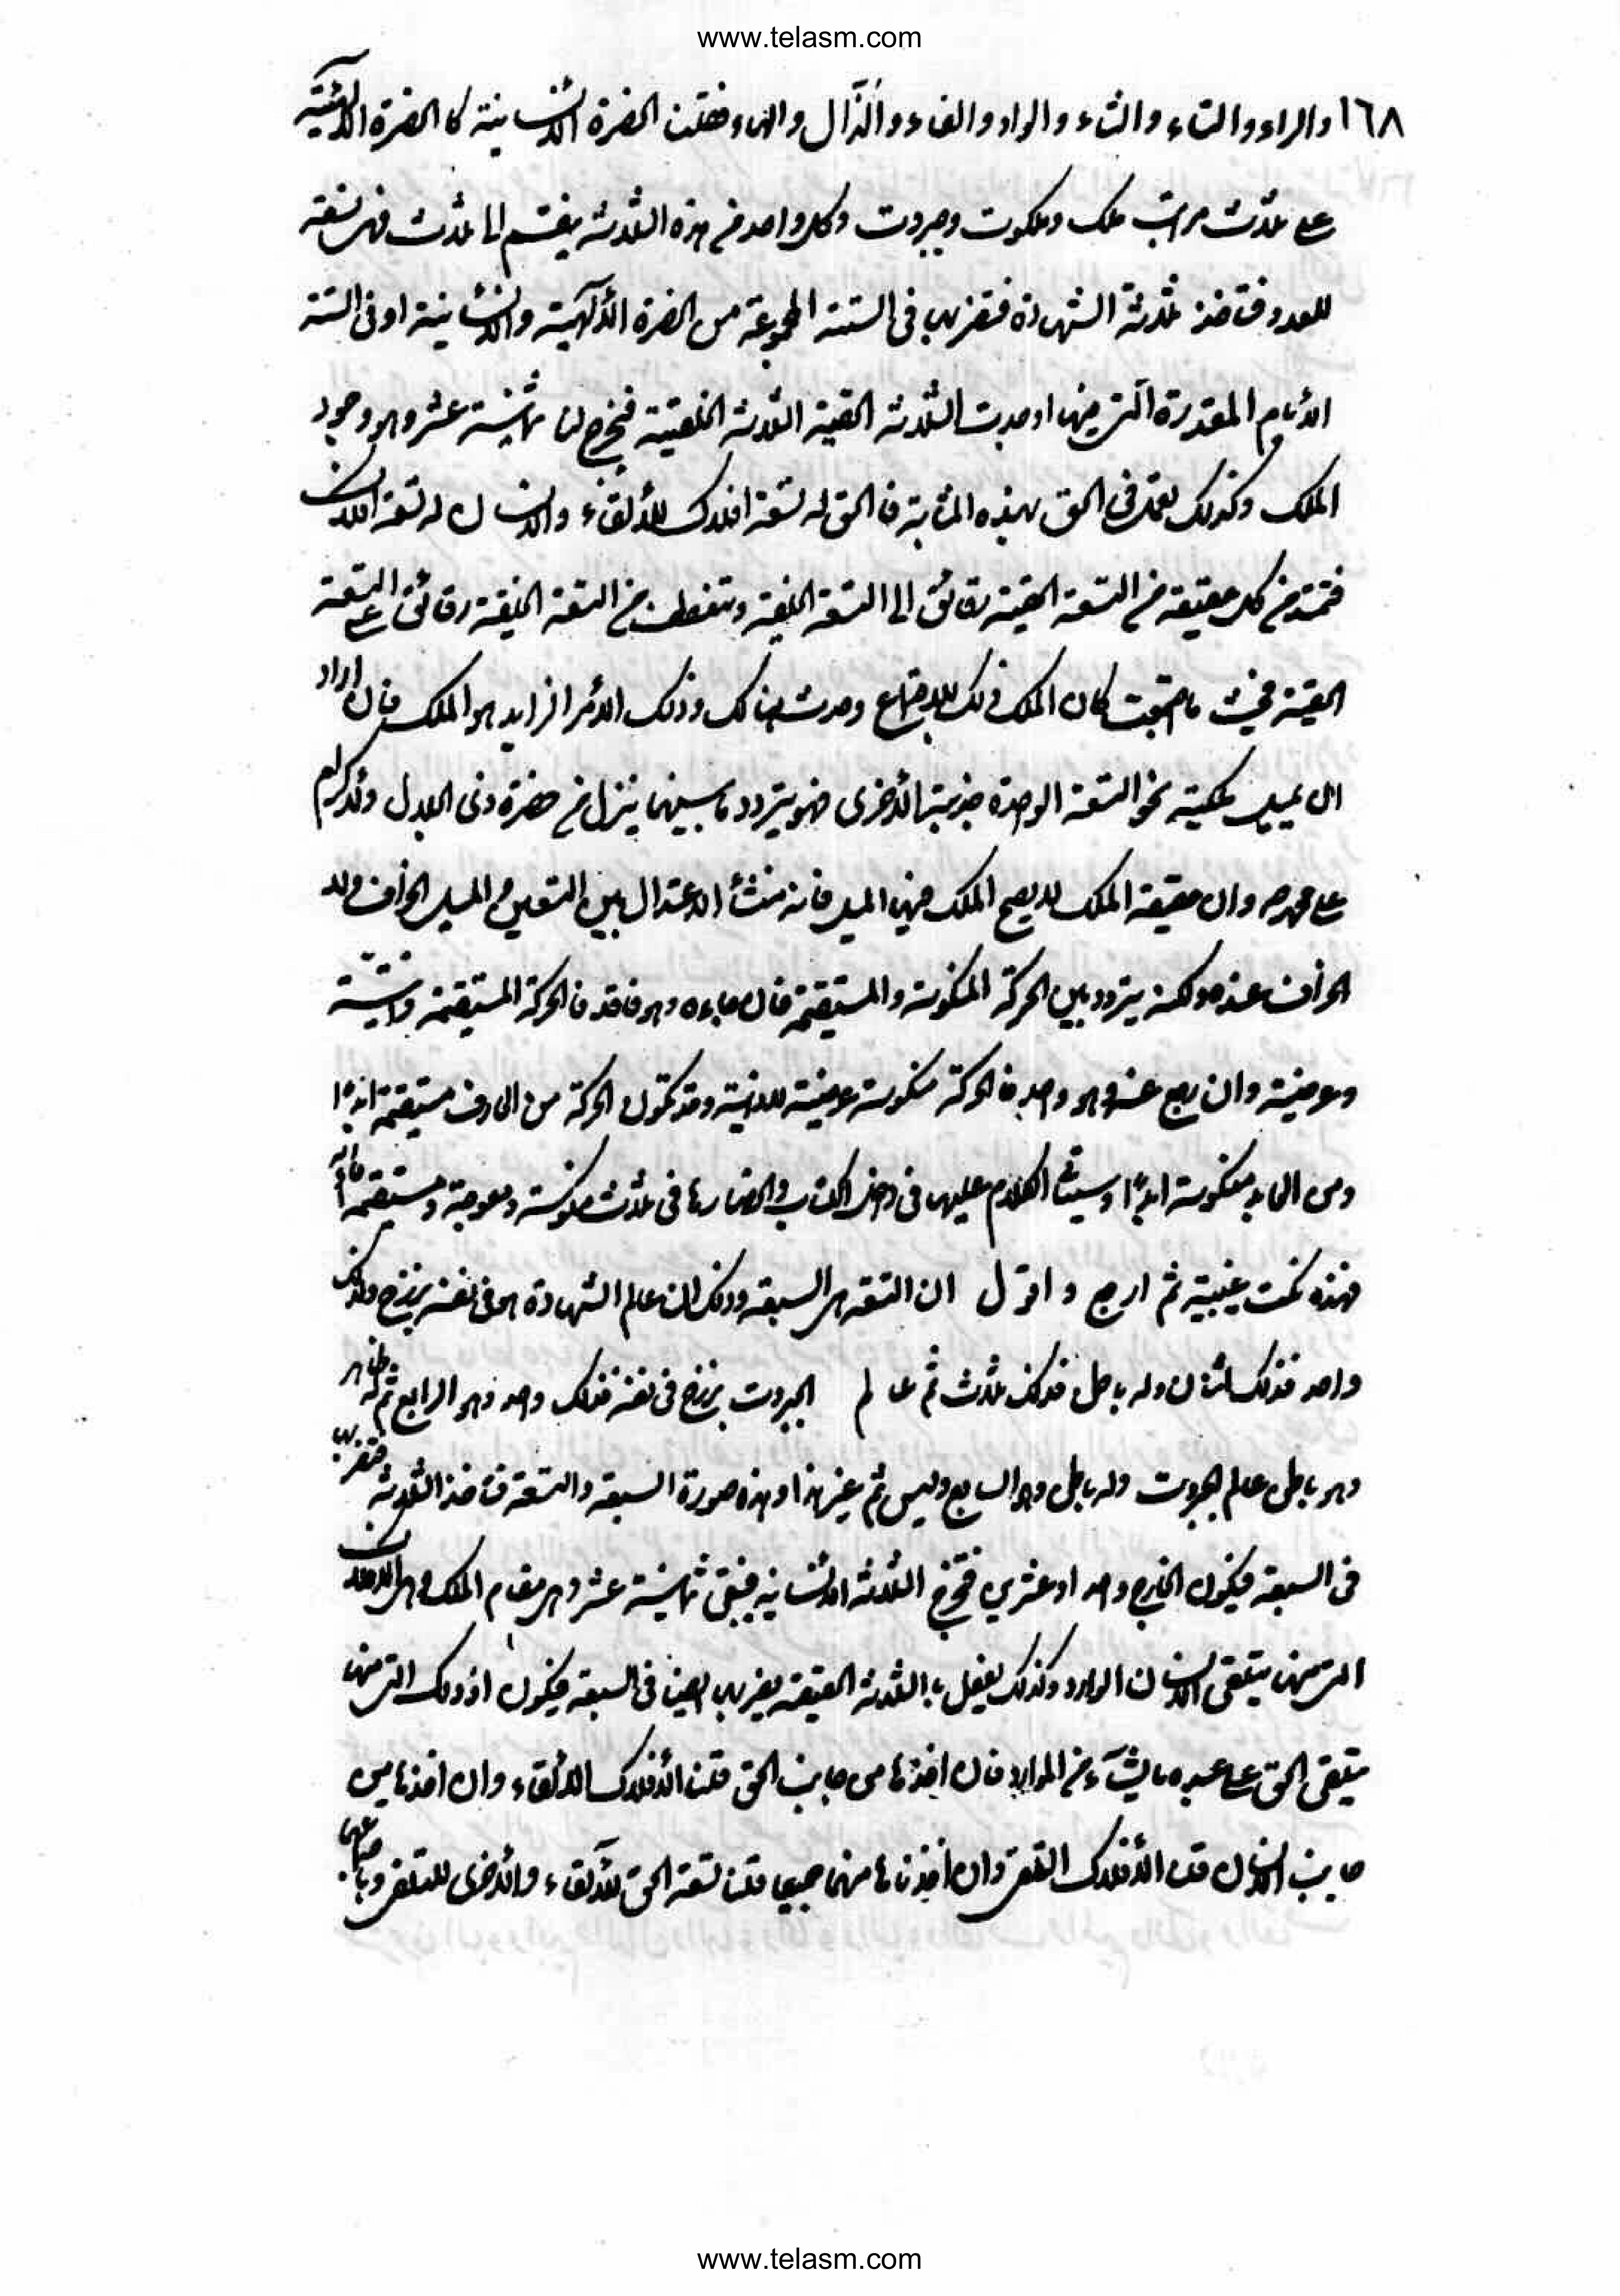 www.telasm.com
١٦٨ والراء والتاء والثاء والواو والفاء والذال والهاء فقلنا الحضرة الانسانية كالحضرة الالهية
على ثلاث مراتب ملك وملكوت وجبروت وكل واحد من هذه الثلاثة ينقسم الى ثلاث فهى تسعة
للعدد فتأخذ ثلاثة الشهادة فتضربها فى الستة المجموعة من الحضرة الالهية والانسانية او فى الستة
الايام المقدرة التى فيها اوجدت الثلاثة الحقية الثلاثة الخلقية فيخرج لنا ثمانية عشر وهو وجود
الملك وكذلك تعمل فى الحق بهذه المثابة فالحق له تسعة افلاك للالقاء والانسان له تسعة افلاك
فتمتد من كل حقيقة من التسعة الحقية رقائق الى التسعة الخلقية وتنعطف من التسعة الخلقية رقائق على التسعة
الحقية فحيث ما اجتمعت كان الملك ذلك الاجتماع وحدث هنالك وذلك الامر الزايد هو الملك فان اراد
ان يميل بكليته نحو التسعة الواحدة جذبته الاخرى فهو يتردد ما بينهما ينزل من حضرة
وان حقيقة الملك لا يصح فيها الميل فانه منشأ الاعتدال بين التسعين والميل انحراف ولا
انحراف عنده ولكنه يتردد بين الحركة المنكوسة والمستقيمة فان جاءه وهو فاقد فالحركة المستقيمة ذاتية
وعرضية وان رجع عنه وهو واجد فالحركة منكوسة عرضية لا ذاتية وقد تكون الحركة من العارف مستقيمة ابدا
ومن العابد منكوسة ابدا وسيأتى الكلام عليها فى داخل الكتاب وانحصارها فى ثلاث منكوسة ومعوجة ومستقيمة ان شاء الله
فهذه نكت غيبية ثم ارجع واقول ان التسعة هى السبعة وذلك ان عالم الشهادة هو فى نفسه برزخ فذلك
واحد فذلك اثنان وله باطن فذلك ثلاث ثم عالم الجبروت برزخ فى نفسه فذلك واحد وهو الرابع ثم له ظاهر
وهو باطن عالم الجبروت وله باطن وهو السابع وليس ثم غير هذا وهذه صورة السبعة والتسعة فتأخذ الثلاثة فتضربها
فى السبعة فيكون الخارج واحدا وعشرين فتخرج الثلاثة الانسانية فيبقى ثمانية عشر وهو مقام الملك وهى الافلاك
التى منها يتلقى الانسان الموارد وكذلك تفعل بالثلاثة الحقية تضربها ايضا فى السبعة فيكون اذ ذاك التى منها
يلقى الحق على عبده ما يشاء من الموارد فان اخذناها من جانب الحق قلنا الافلاك الالقاء وان اخذناها من
جانب الانسان قلنا الافلاك التلقى وان اخذناها منهما جميعا قلنا تسعة الحق للالقاء والاخرى للتلقى وباجتماعهما
www.telasm.com